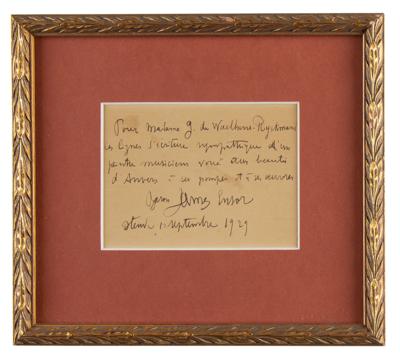 Pour Madame J. de Waelhens-Ryckmans
ces lignes d'écriture sympathique d'un
peintre musicien voué aux beautés
d'Anvers à ses pompes et à ses œuvres
Baron James Ensor
Ostende septembre 1929